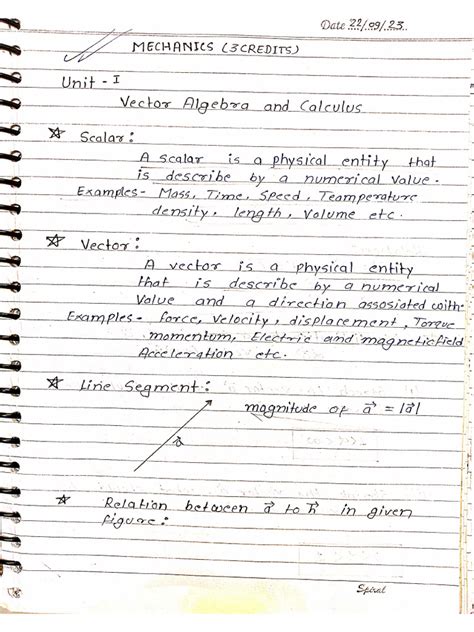 Date 22/09/23
MECHANICS (3CREDITS)
Unit - I
Vector Algebra and Calculus
☆ Scalar :
A scalar is a physical entity that
is describe by a numerical value.
Examples- Mass, Time, Speed, Teamperature
density, length, volume etc.
☆ Vector :
A vector is a physical entity
that is describe by a numerical
value and a direction assosiated with-
Examples- force, velocity, displacement, Torque
momentum, Electric and magneticfield
Acceleration etc.
☆ Line Segment :
magnitude of a⃗ = |a⃗|
a⃗
☆ Relation between a⃗ to n⃗ in given
figure :
Spiral